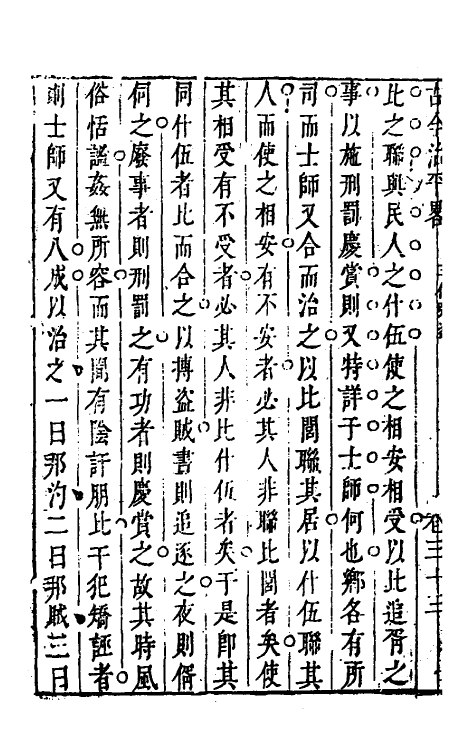 古今治平畧
卷三十三
比之聯與民人之什伍使之相安相受以比追胥之
事以施刑罰慶賞則又特詳于士師何也鄉各有所
司而士師又合而治之以比閭聯其居以什伍聯其
人而使之相安有不安者必其人非聯比閭者矣使
其相受有不受者必其人非比什伍者矣于是卽其
同什伍者比而合之以搏盜賊書則追逐之夜則偦
伺之廢事者則刑罰之有功者則慶賞之故其時風
俗恬謐姦無所容而其閒有陰訐朋比干犯矯誣者
則士師又有八成以治之一曰邦汋二曰邦賊三曰